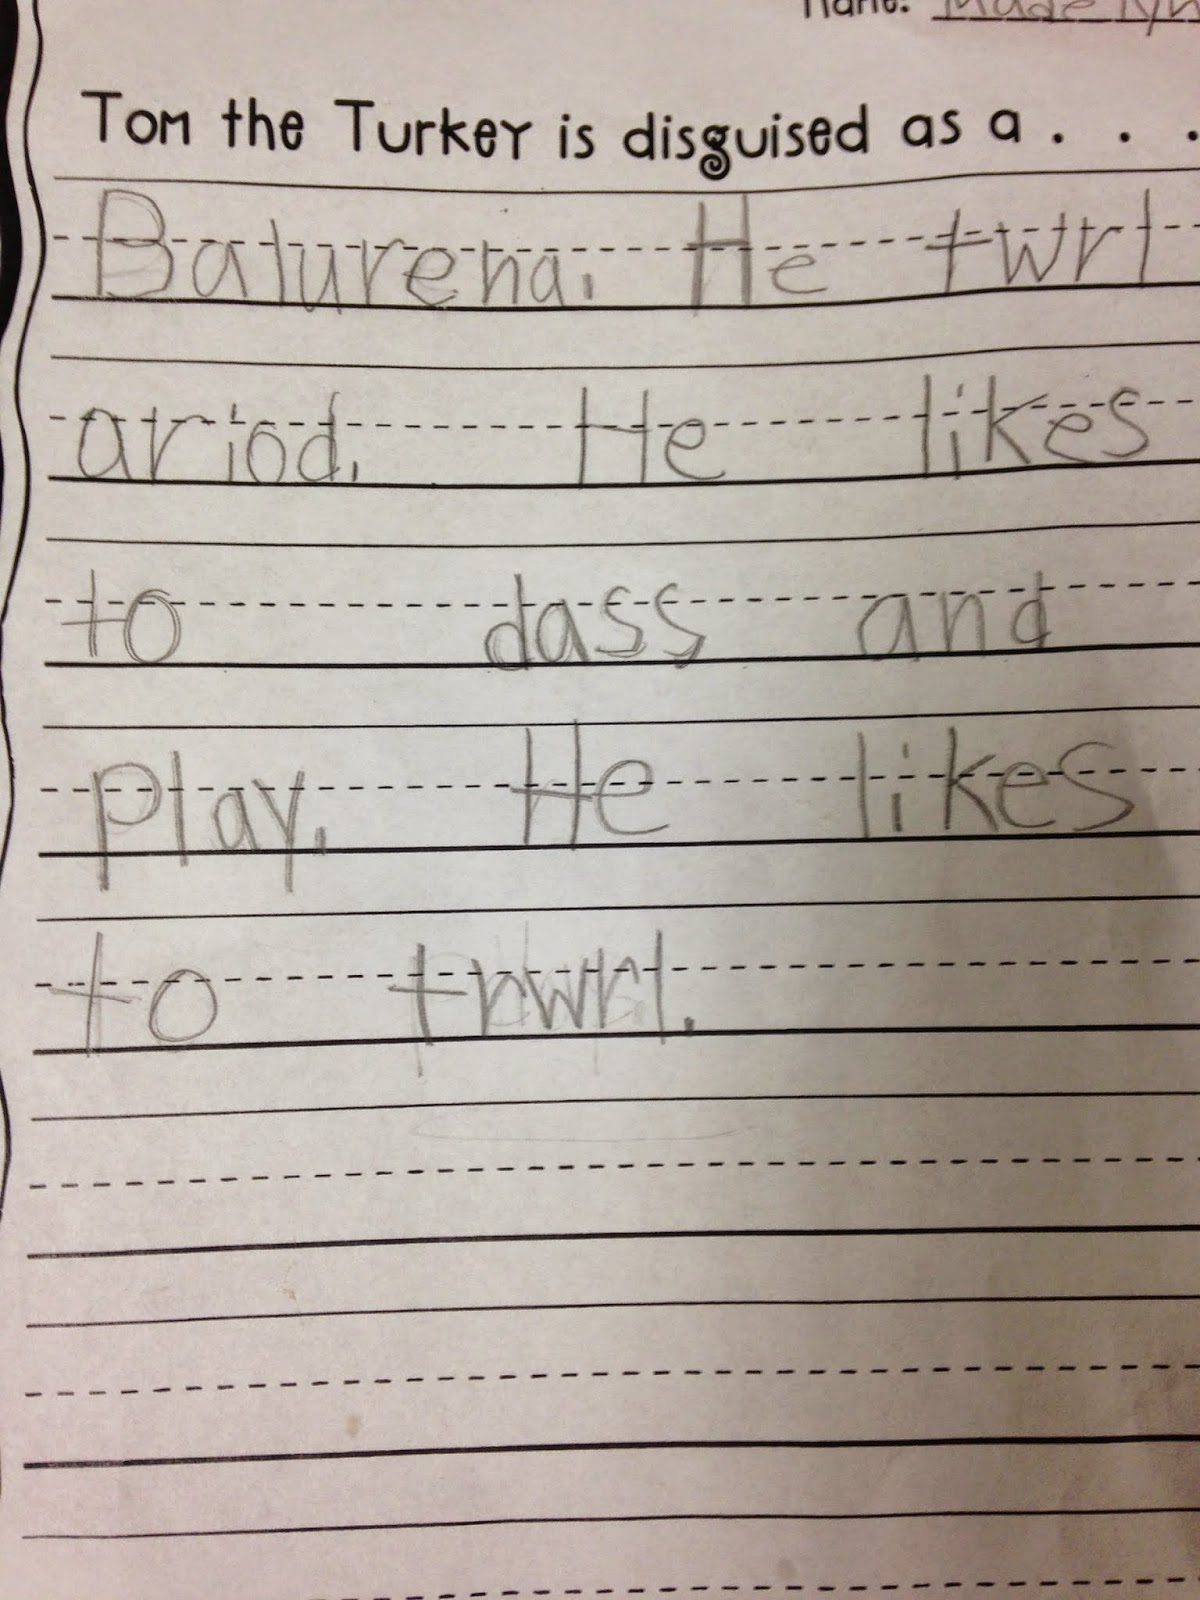 Name: Madelyn
Tom the Turkey is disguised as a . . .
Balurena. He twrl
ariod. He likes
to dass and
play. He likes
to trwrl.